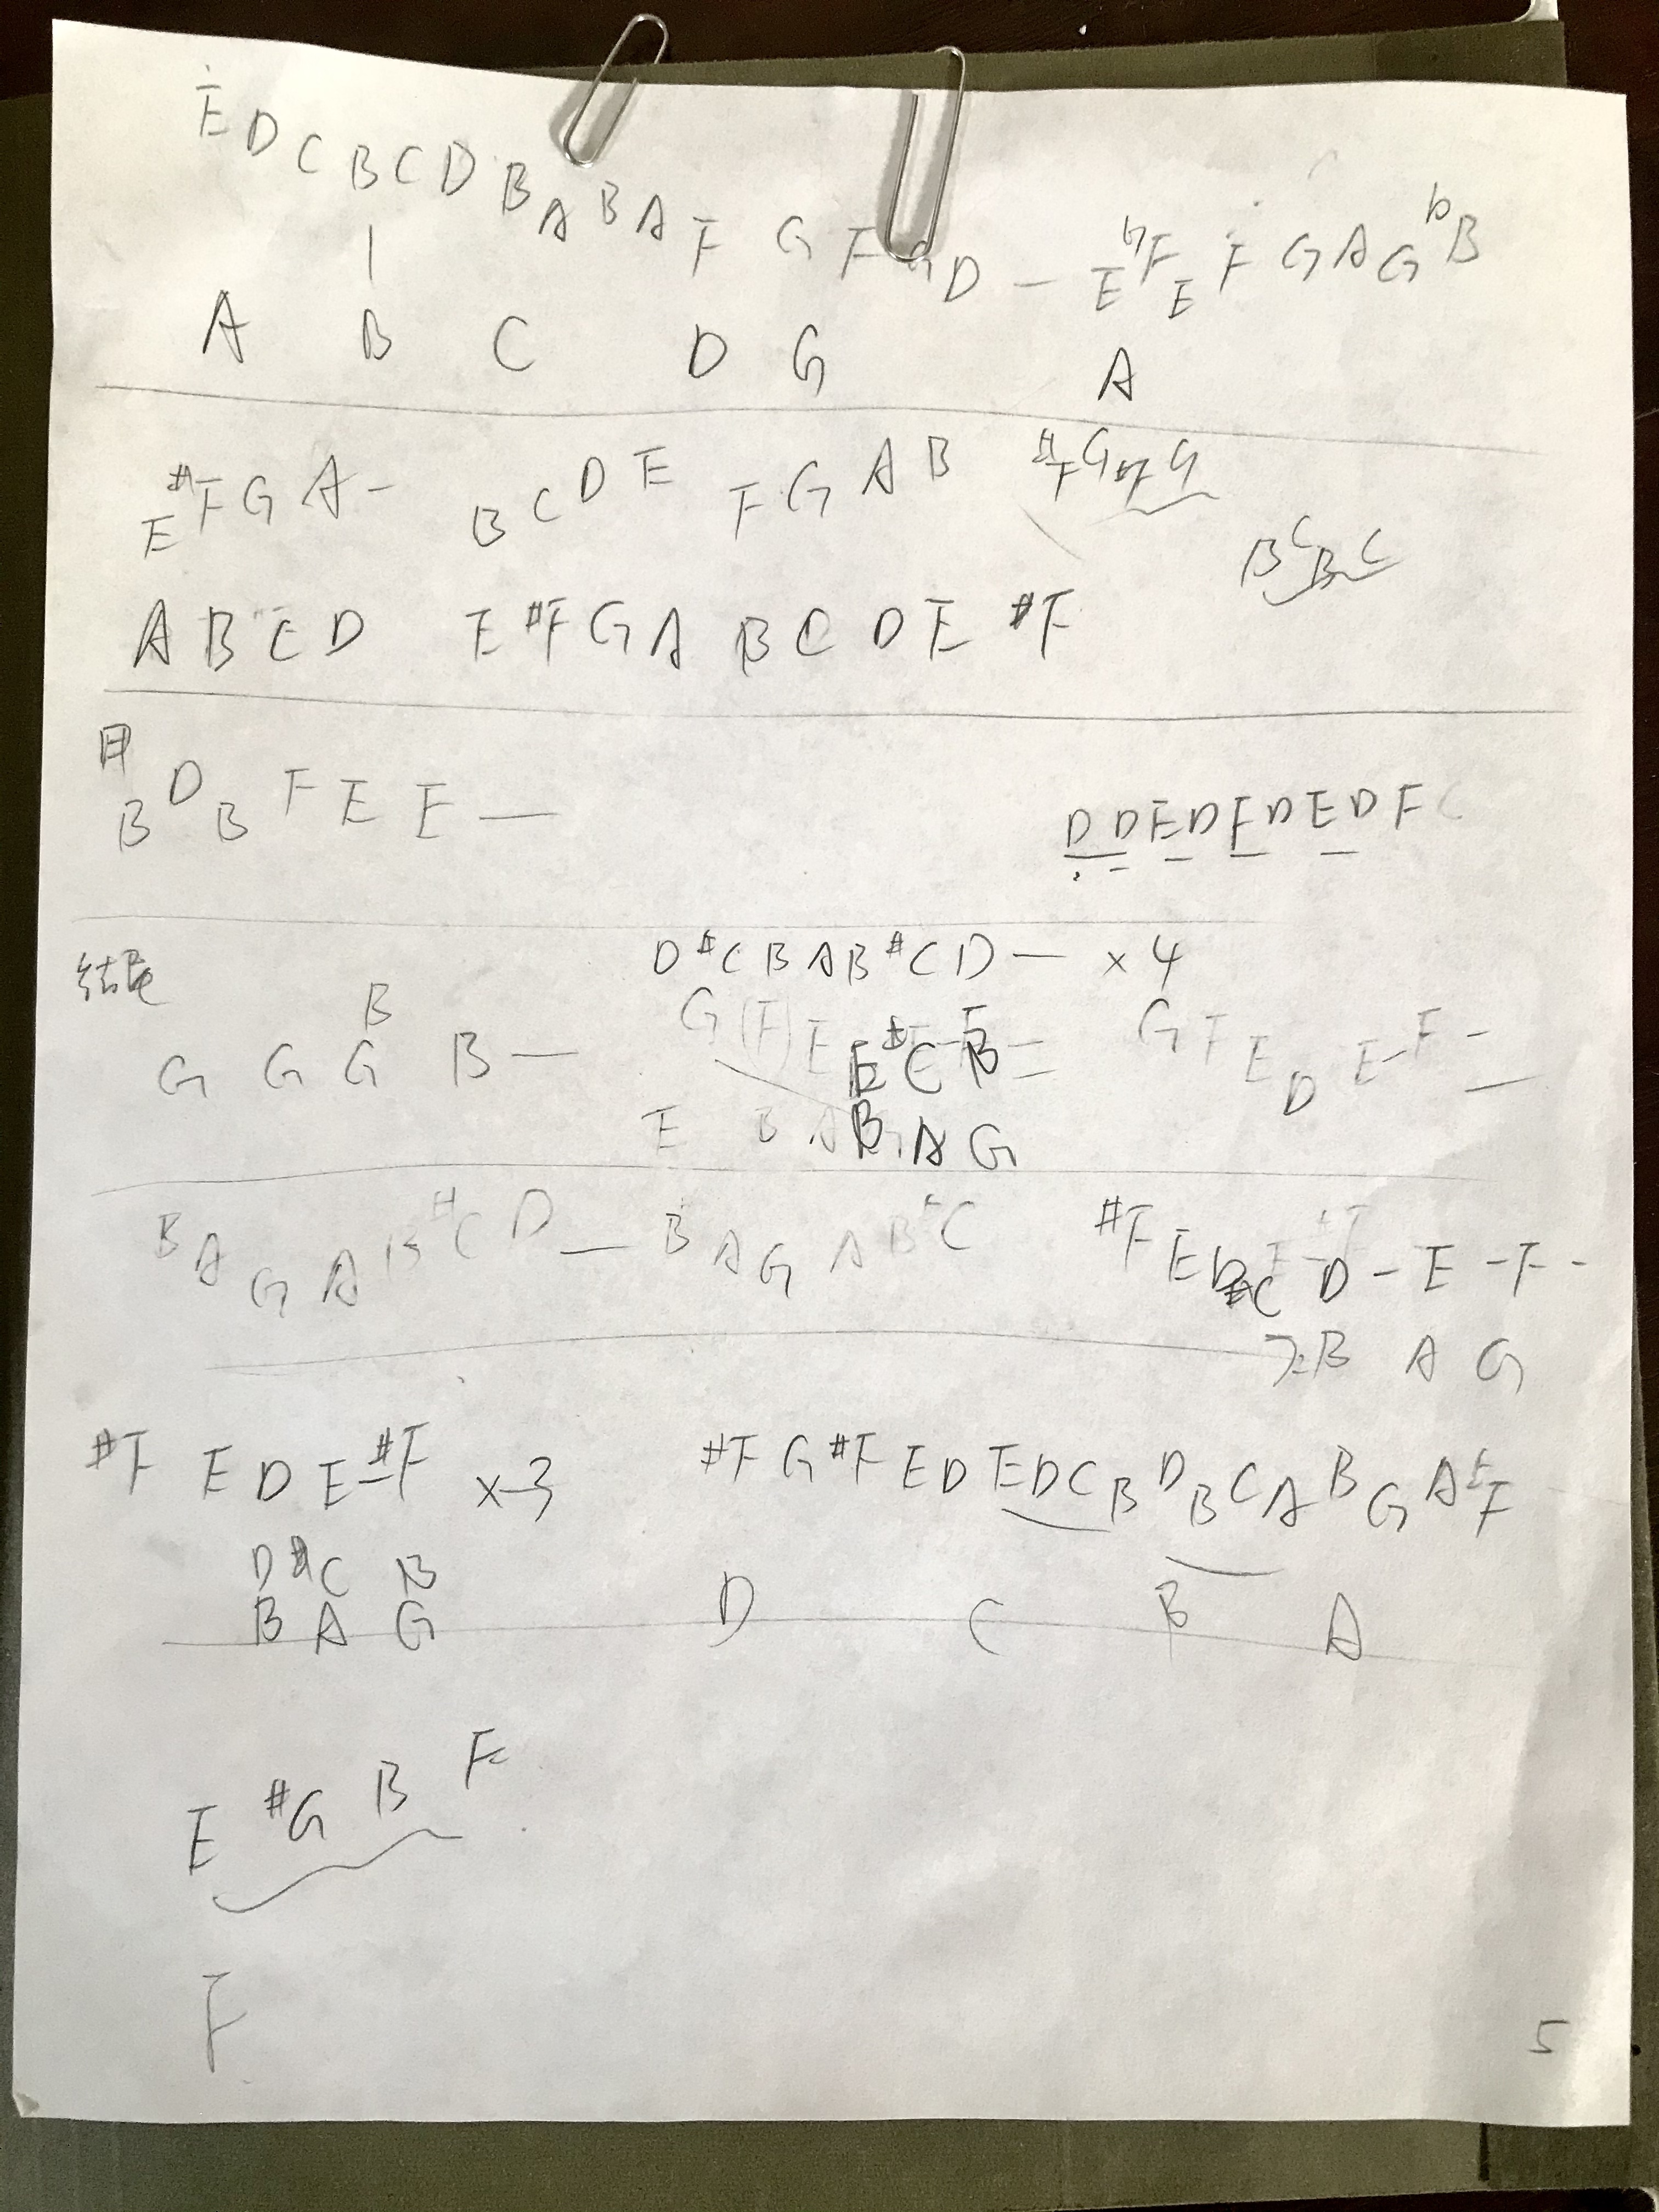 Ė D C B C D B A B A F G F G D — E ♮F E F G A G ♭B
A B C D G A
E #F G A - B C D E F G A B #F G #F G
B C B C
A B C D E #F G A B C D E #F
B D B F E E —
D D E D F D E D F C
结尾
D #C B A B #C D — × 4
G G G B B —
G (F) E E #C B
G F E D E - F -
E B A B A G
B A G A B #C D — B A G A B #C
#F E D #C D - E - F -
B A G
#F E D E - #F × 3
#F G #F E D E D C B D B C A B G A #F
D #C B
B A G
D C B A
E #G B F
F
5